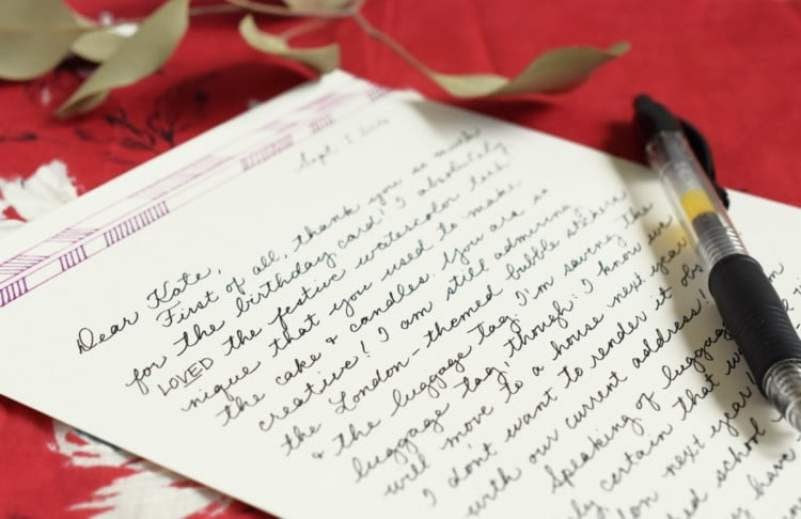 Sept.
Dear Kate,
First of all, thank you so much
for the birthday card! I absolutely
LOVED the festive watercolor tech-
nique that you used to make
the cake & candles. You are so
creative! I am still admiring
the London-themed bubble stickers
& the luggage tag. I'm saving the
luggage tag, though: I know we
will move to a house next year
I don't want to render it obs
with our current address!
Speaking of luggage
certain that we
next year!
school
have